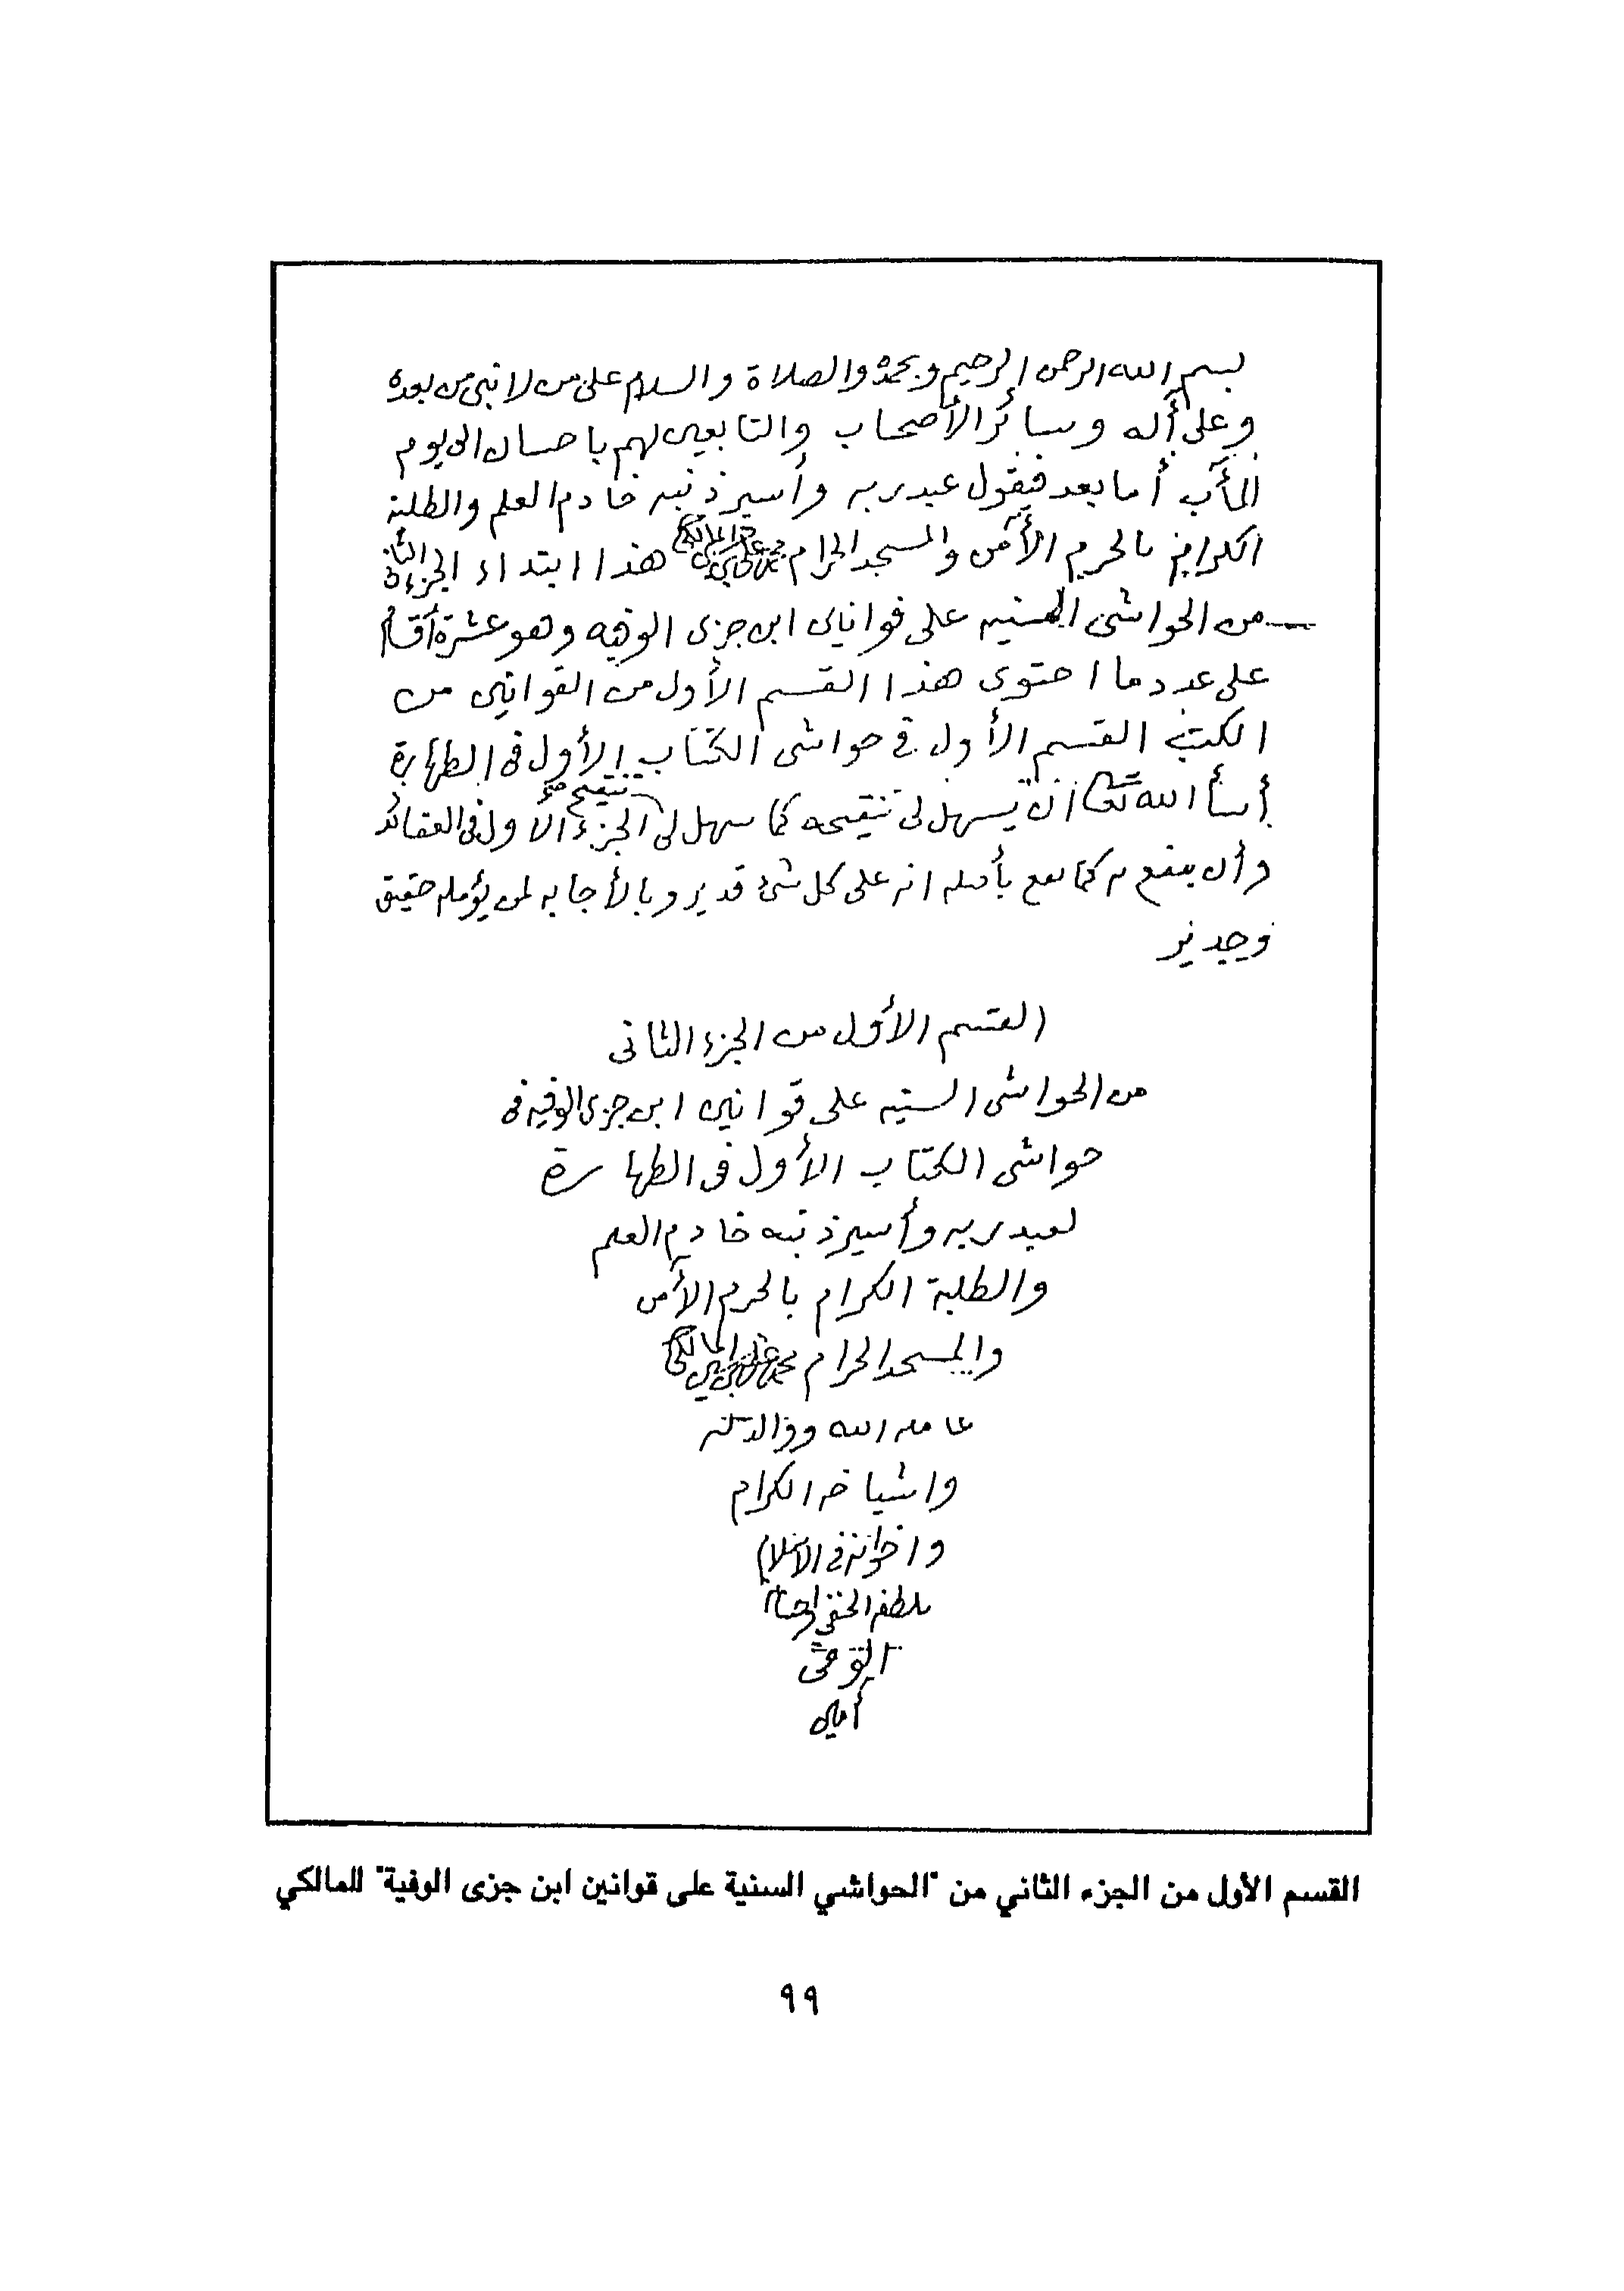 بسم الله الرحمن الرحيم وبحمده والصلاة والسلام على من لا نبي من بعده
وعلى آله وسائر الأصحاب والتابعين لهم باحسان الى يوم
المآب أما بعد فيقول عبد ربه وأسير ذنبه خادم العلم والطلبة
الكرام بالحرم الأمن والمسجد الحرام محمد على المالكي هذا ابتداء الجزء الثاني
من الحواشى السنيه على قوانين ابن جزى الوفيه وهو عشرة أقسام
على عدد ما احتوى هذا القسم الأول من القوانين من
الكتب القسم الأول في حواشى الكتاب الأول فى الطهارة
أسأل الله تعالى ان يسهل لى تنقيحه كما سهل لى تنقيح الجزء الأول فى العقائد
وأن ينفع به كما نفع بأصله انه على كل شئ قدير وبالأجابه لمن يؤمله حقيق
وجدير
القسم الأول من الجزء الثانى
من الحواشى السنيه على قوانين ابن جزى الوفيه فى
حواشى الكتاب الأول فى الطهارة
لعبد ربه وأسير ذنبه خادم العلم
والطلبة الكرام بالحرم الأمن
والمسجد الحرام محمد على المالكي
عامله الله ووالديه
واشياخه الكرام
واخوانه فى الاسلام
بلطفه الخفى
أمين
القسم الأول من الجزء الثاني من "الحواشي السنية على قوانين ابن جزى الوفية" للمالكي
٩٩